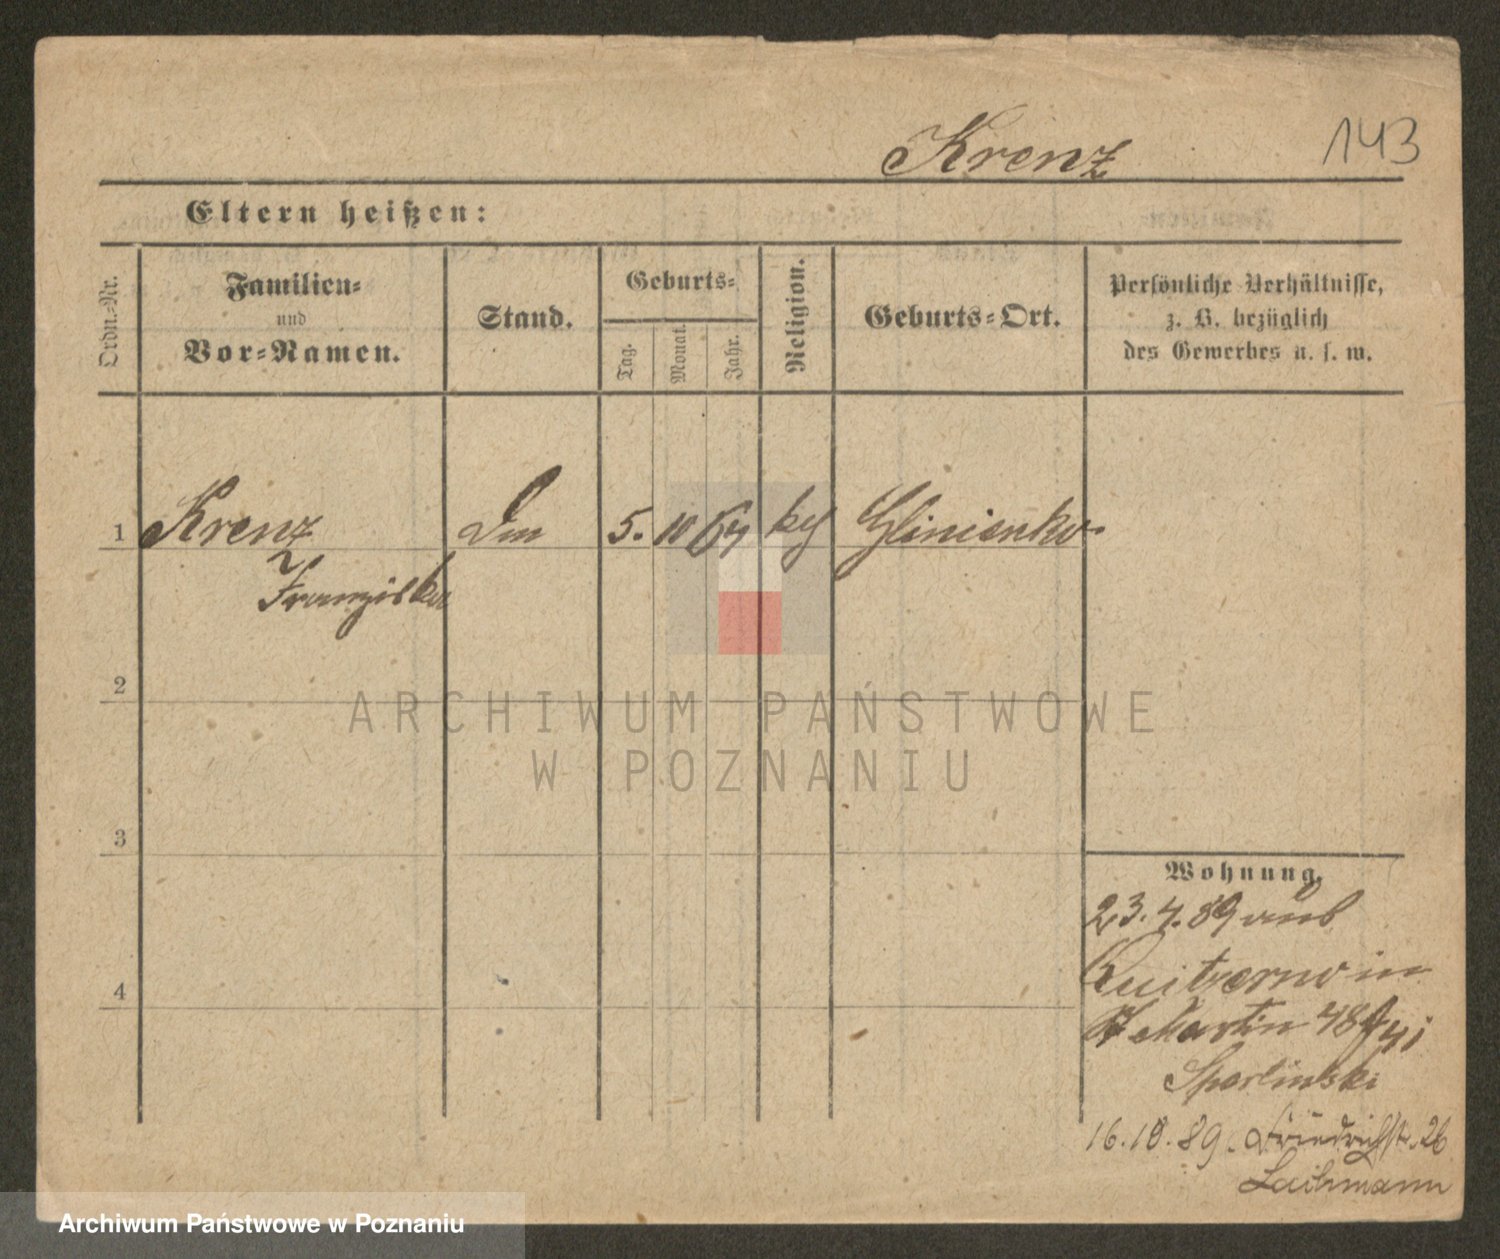 Krenz
143
Eltern heißen:
Ordn.-Nr.
Familien-
und
Vor-Namen.
Stand.
Geburts-
Tag.
Monat.
Jahr.
Religion.
Geburts-Ort.
Persönliche Verhältnisse,
z. B. bezüglich
des Gewerbes u. s. w.
1 Krenz 5. 10 64 Glinienko
Franziska
2
3
4
Wohnung.
23.4.89 aus
in
Martin 48
Sparlinski
16.10.89. Friedrichstr. 26
Lachmann
ARCHIWUM PAŃSTWOWE
W POZNANIU
Archiwum Państwowe w Poznaniu